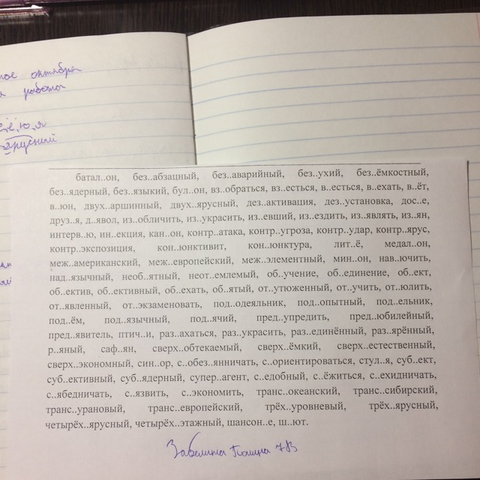 октября
работа
батал..он, без..абзацный, без..аварийный, без..ухий, без..ёмкостный,
без..ядерный, без..языкий, бул..он, вз..обраться, вз..есться, в..есться, в..ехать, в..ёт,
в..юн, двух..аршинный, двух..ярусный, дез..активация, дез..установка, дос..е,
друз..я, д..явол, из..обличить, из..украсить, из..евший, из..ездить, из..являть, из..ян,
интерв..ю, ин..екция, кан..он, контр..атака, контр..угроза, контр..удар, контр..ярус,
контр..экспозиция, кон..юнктивит, кон..юнктура, лит..ё, медал..он,
меж..американский, меж..европейский, меж..элементный, мин..он, нав..ючить,
над..язычный, необ..ятный, неот..емлемый, об..учение, об..единение, об..ект,
об..ектив, об..ективный, об..ехать, об..ятый, от..утюженный, от..учить, от..юлить,
от..явленный, от..экзаменовать, под..одеяльник, под..опытный, под..ельник,
под..ём, под..язычный, под..ячий, пред..упредить, пред..юбилейный,
пред..явитель, птич..и, раз..ахаться, раз..украсить, раз..единённый, раз..ярённый,
р..яный, саф..ян, сверх..обтекаемый, сверх..ёмкий, сверх..естественный,
сверх..экономный, син..ор, с..обез..янничать, с..ориентироваться, стул..я, суб..ект,
суб..ективный, суб..ядерный, супер..агент, с..едобный, с..ёжиться, с..ехидничать,
с..ябедничать, с..язвить, с..экономить, транс..океанский, транс..сибирский,
транс..урановый, транс..европейский, трёх..уровневый, трёх..ярусный,
четырёх..ярусный, четырёх..этажный, шансон..е, ш..ют.
Забелина Полина 7В